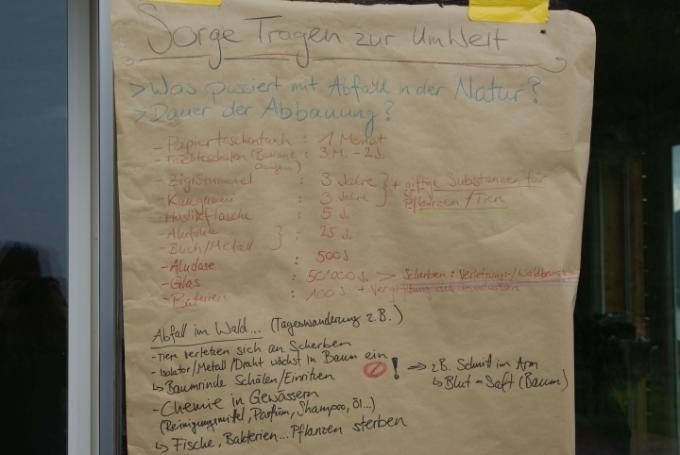 Sorge Tragen zur Umwelt
> Was passiert mit Abfall in der Natur?
> Dauer der Abbauung?
- Papiertaschentuch : 1 Monat
- Fruchtschalen (Banane, : 3 M. - 2 J.
Orang...)
- Zigistummel : 3 Jahre } + giftige Substanzen für
- Kaugummi : 3 Jahre Pflanzen / Tiere
- Plastikflasche : 5 J.
- Alufolie } : 25 J.
- Büch/Metall
- Aludose : 500 J
- Glas : 50'000 J. > Scherben : Verletzung-/Waldbrand
- Baterien : 100 J. + Vergiftung
Abfall im Wald... (Tageswanderung z.B.)
- Tiere verletzen sich an Scherben
- Isolator/Metall/Draht wächst in Baum ein
↳ Baumrinde Schälen/Einritzen ! → z.B. Schnitt im Arm
↳ Blut = Saft (Baum)
- Chemie in Gewässern
(Reinigungsmittel, Parfüm, Shampoo, Öl...)
↳ Fische, Bakterien... Pflanzen sterben